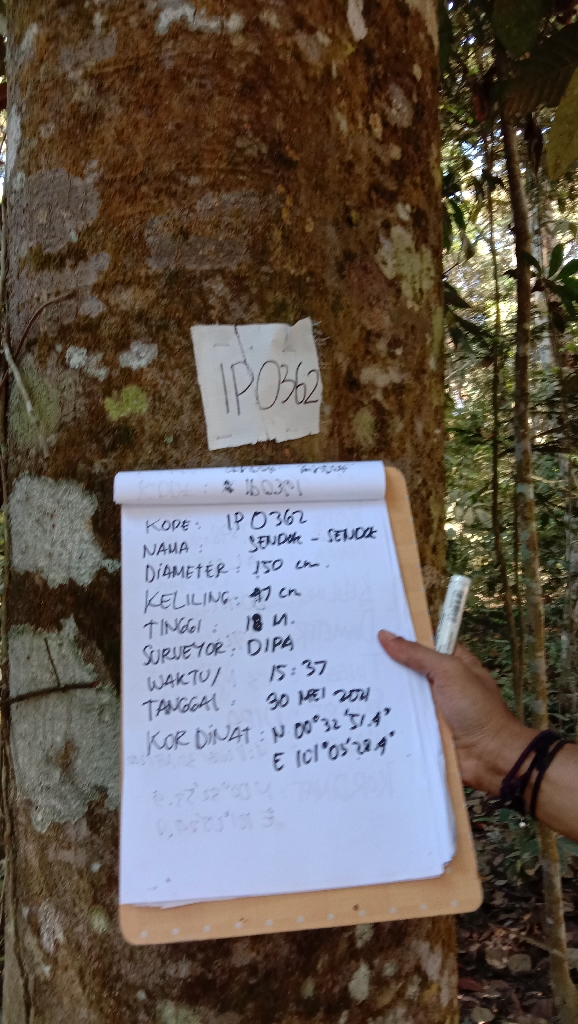 IPO362
KODE: IPO362
NAMA: SENDOK - SENDOK
DIAMETER: 150 cm.
KELILING: 47 cm
TINGGI: 18 M.
SURVEYOR: DIPA
WAKTU/: 15:37
TANGGAL: 30 MEI 2021
KORDINAT: N 00°32'51.4"
E 101°05'28.4"